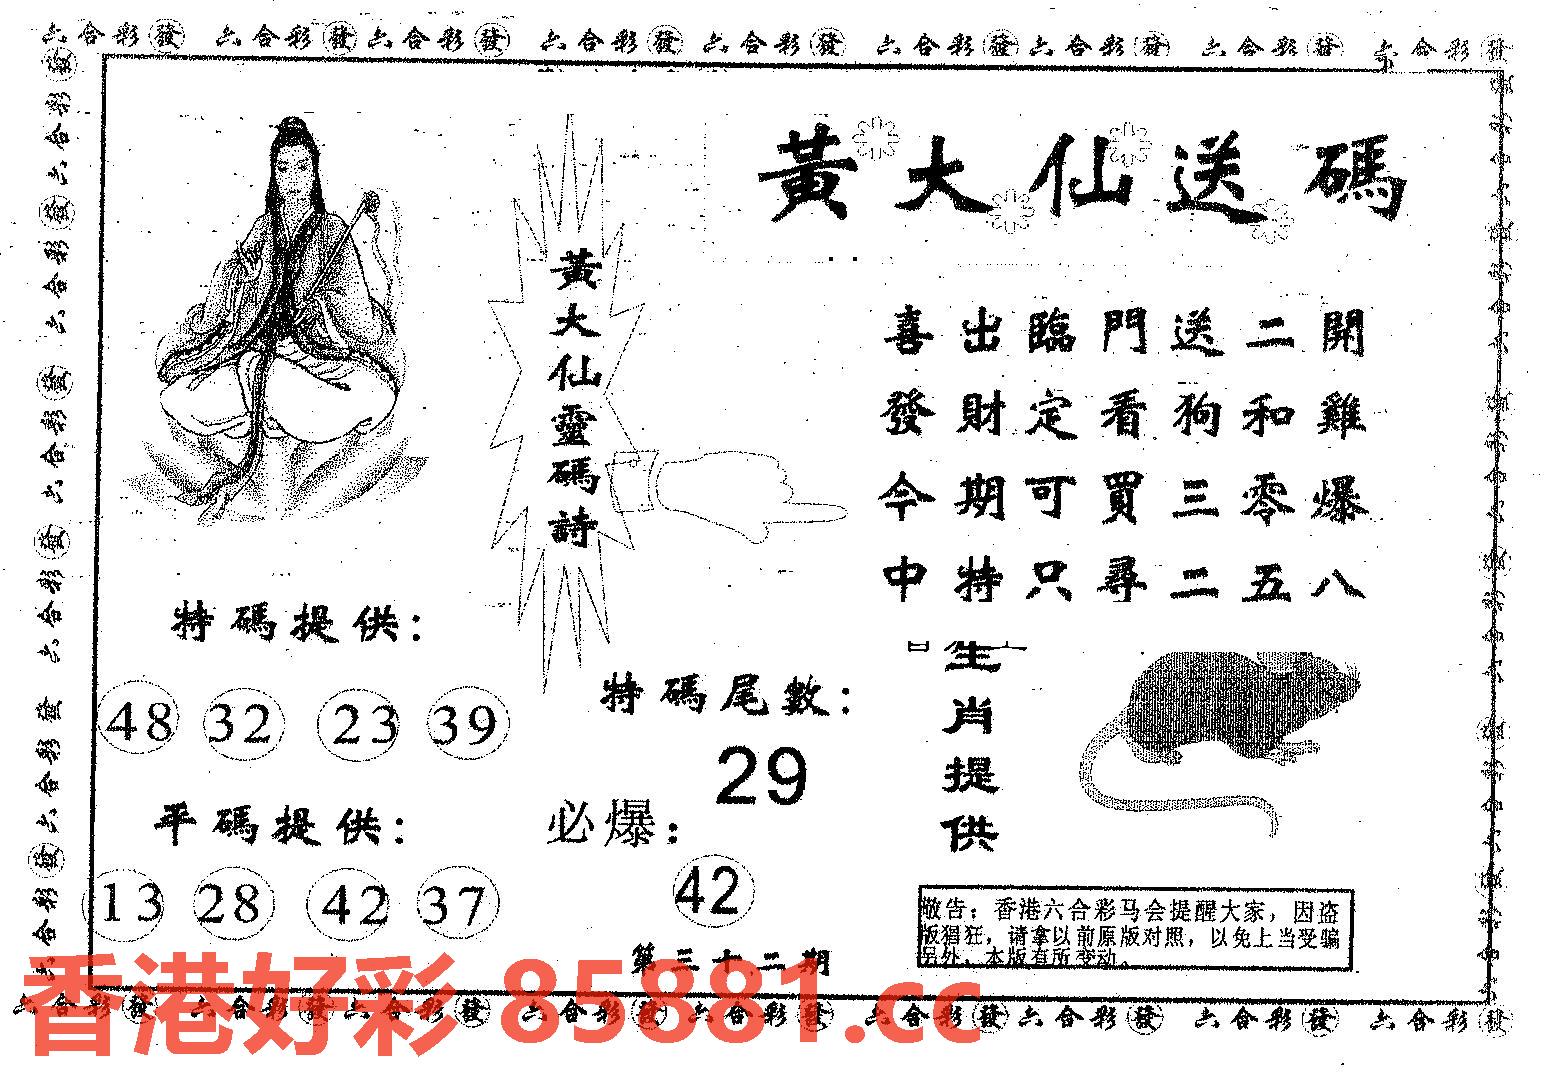 六合彩發 六合彩發 六合彩發 六合彩發 六合彩發 六合彩發 六合彩發 六合彩發 六合彩發
黃大仙送碼
黃大仙靈碼詩
喜出臨門送二開
發財定看狗和雞
今期可買三零爆
中特只尋二五八
特碼提供：
48 32 23 39
平碼提供：
13 28 42 37
特碼尾數：
29
必爆：
42
第三十二期
生肖提供
敬告；香港六合彩马会提醒大家，因盗
版猖狂，请拿以前原版对照，以免上当受骗
另外，本版有所变动。
香港好彩 85881.cc
六合彩發 六合彩發 六合彩發 六合彩發 六合彩發 六合彩發 六合彩發 六合彩發 六合彩發